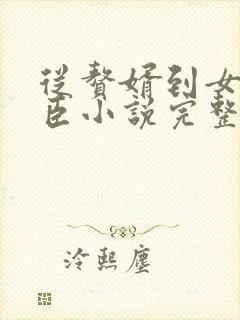 從贅婿到女
臣小說完整
冷熙塵